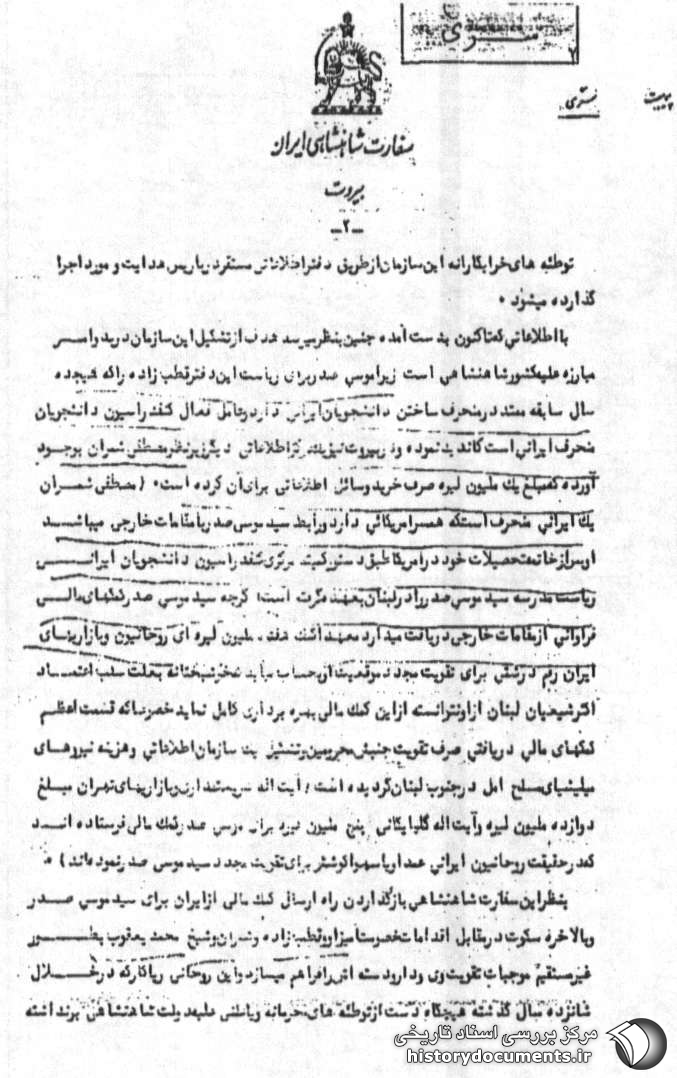 سری
پیوست
سفارت شاهنشاهی ایران
بیروت
-۲-
توطئه های خرابکارانه این سازمان از طریق دفتر اطلاعاتی مستقر در پاریس هدایت و مورد اجرا
گذارده میشود .
با اطلاعاتی که تاکنون بدست آمده چنین بنظر میرسد هدف از تشکیل این سازمان در ید واسر
مبارزه علیه کشور شاهنشاهی است زیرا موسی صدر برای ریاست این دفتر قطب زاده را که هیجده
سال سابقه ممتد در منحرف ساختن دانشجویان ایرانی دارد و عامل فعال کنفدراسیون دانشجویان
منحرف ایرانی است کاندید نموده و در بیروت نیز یک دفتر اطلاعاتی دیگر زیر نظر مصطفی شمران بوجود
آورده که مبلغ یک ملیون لیره صرف خرید وسائل اطلاعاتی برای آن کرده است . ( مصطفی شمران
یک ایرانی منحرف است که همسر امریکائی دارد و رابط سید موسی صدر با مقامات خارجی میباشد
او پس از خاتمه تحصیلات خود در امریکا طبق دستور کمیته مرکزی کنفدراسیون دانشجویان ایرانی
ریاست مدرسه سید موسی صدر را در لبنان بعهده گرفت است ) گرچه سید موسی صدر کمکهای مالی
فراوانی از مقامات خارجی دریافت میدارد معهذا هفت ملیون لیره ای روحانیون و بازاریهای
ایران رقم درشتی برای تقویت مجدد موقعیت او بحساب میآید خوشبختانه بعلت سلب اعتماد
اکثر شیعیان لبنان از او نتوانسته از این کمک مالی بهره برداری کامل نماید خصوصا که قسمت اعظم
کمکهای مالی دریافتی صرف تقویت جنبش محرومین و تشکیل سازمان اطلاعاتی و هزینه نیروهای
میلیشیای مسلح امل در جنوب لبنان گردیده است ( آیت اله شریعتمداری و بازاریهای تهران مبلغ
دوازده ملیون لیره و آیت اله گلپایگانی پنج ملیون لیره برای موسی صدر کمک مالی فرستاده اند
که در حقیقت روحانیون ایرانی عمدا و یا سهوا کوشش برای تقویت مجدد سید موسی صدر نموده اند ) .
بنظر این سفارت شاهنشاهی بازگذاردن راه ارسال کمک مالی از ایران برای سید موسی صدر
و بالاخره سکوت در مقابل اقدامات خصومت آمیز او و قطب زاده و شمران و شیخ محمد یعقوب بطور
غیر مستقیم موجبات تقویت وی و دار و دسته اش را فراهم میسازد و این روحانی ریاکار که در خلال
شانزده سال گذشته هیچگاه دست از توطئه های محرمانه و باطنی علیه دولت شاهنشاهی برنداشته
مرکز بررسی اسناد تاریخی
historydocuments.ir